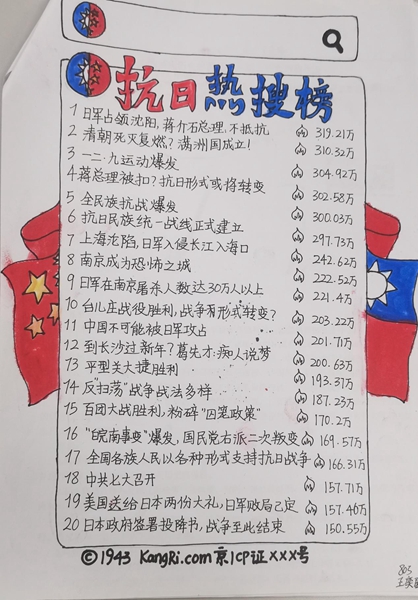 抗日热搜榜
1 日军占领沈阳,蒋介石总理,不抵抗 319.21万
2 清朝死灭复燃?满洲国成立! 310.32万
3 一二·九运动爆发 304.92万
4 蒋总理被扣?抗日形式或将转变 302.58万
5 全民族抗战爆发 300.03万
6 抗日民族统一战线正式建立 297.73万
7 上海沦陷,日军入侵长江入海口 242.62万
8 南京成为恐怖之城 222.52万
9 日军在南京屠杀人数达30万人以上 221.4万
10 台儿庄战役胜利,战争有形式转变? 203.22万
11 中国不可能被日军攻占 201.71万
12 到长沙过新年?葛先才:痴人说梦 200.63万
13 平型关大捷胜利 193.31万
14 反"扫荡"战争战法多样 187.23万
15 百团大战胜利,粉碎"囚笼政策" 170.2万
16 "皖南事变"爆发,国民党右派二次叛变 169.57万
17 全国各族人民以各种形式支持抗日战争 166.31万
18 中共七大召开 157.71万
19 美国送给日本两份大礼,日军败局已定 157.46万
20 日本政府签署投降书,战争至此结束 150.55万
©1943 KangRi.com 京ICP证×××号
805